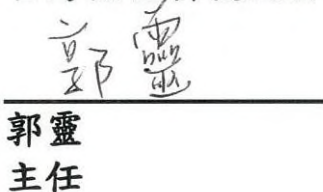 郭靈
郭靈
主任